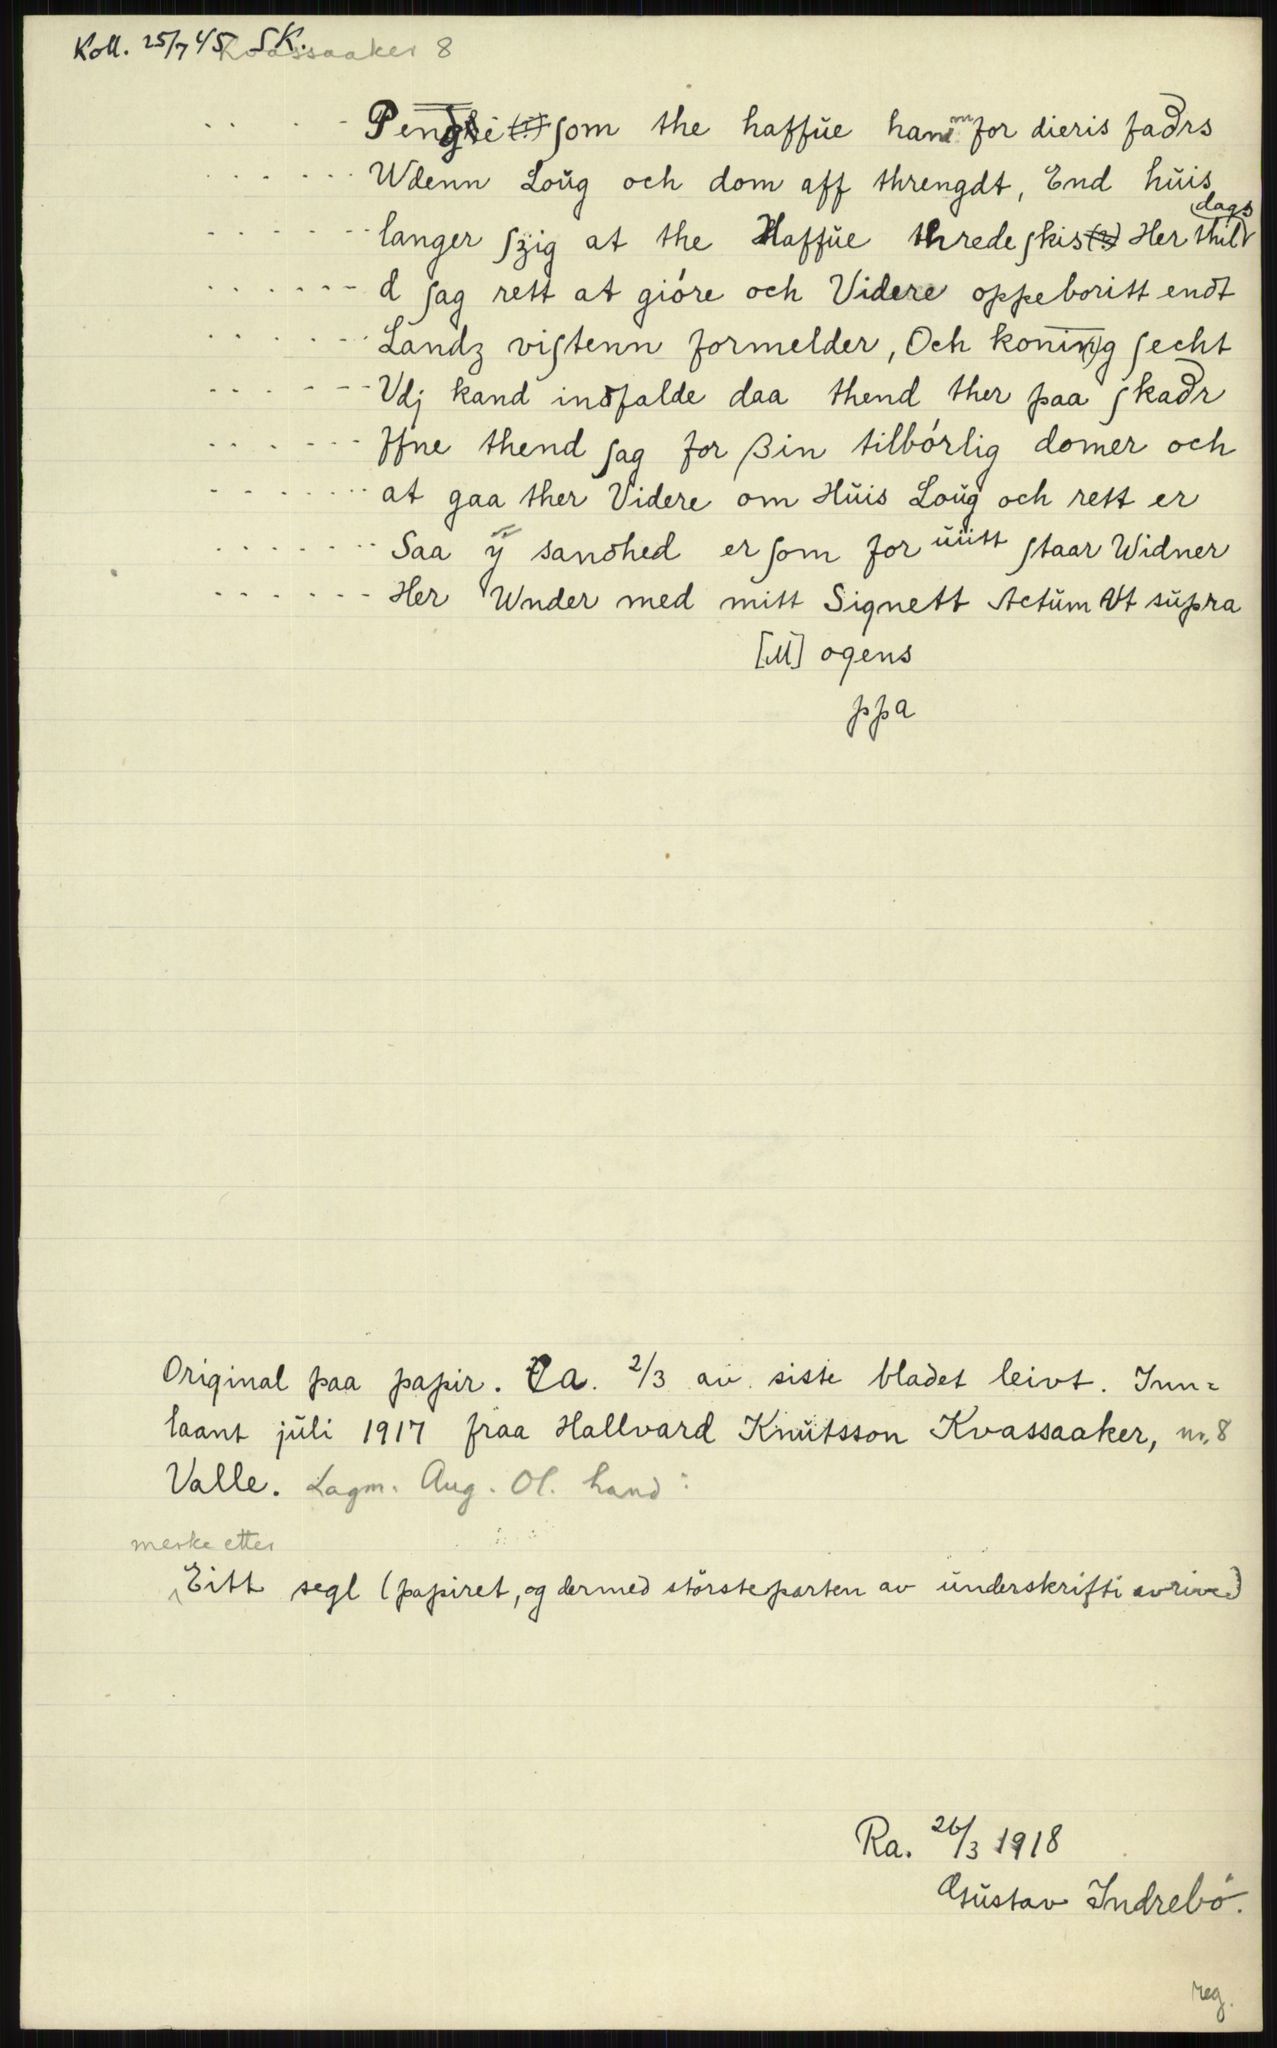 Koll. 25/7 45 SK.
Kvassaaker 8
. . . . Pen som the haffŭe hannem for dieris fadrs
. . . . . . Wdenn Loŭg och dom aff threngdt, End hŭis
. . . . . . langer szig at the Haffŭe threde skis Her thil dags
. . . . . . d sag rett at gióre och Videre oppeboritt endt
. . . . . . Landz vistenn formelder, Och koning secht
. . . . . . Vdj kand indfalde daa thend ther paa skadr
. . . . . . ffne thend sag for ßin tilbórlig domer och
. . . . . . at gaa ther Videre om Hŭis Loŭg och rett er
. . . . . . Saa ÿ sandhed er som for ŭitt staar Widner
. . . . . . Her Wnder med mitt Signett Actŭm Vt sŭpra
[M] ogens
ppa
Original paa papir. Ca. 2/3 av siste bladet leivt. Inn=
laant jŭli 1917 fraa Hallvard Knŭtsson Kvassaaker, nr. 8
Valle. Lagm. Aug. Ol. hand:
merke etter
Eitt segl (papiret, og dermed störsteparten av ŭnderskrifti avrive)
Ra. 26/3 1918
Gŭstav Indrebó.
reg.